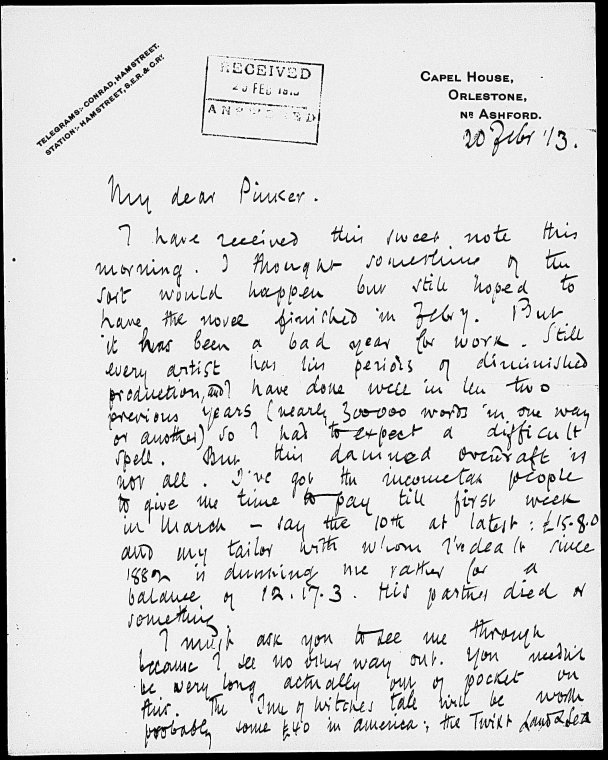 TELEGRAMS:- CONRAD, HAMSTREET.
STATION:- HAMSTREET, S.E.R. & C.RY.
RECEIVED
20 FEB 1913
ANSWERED
CAPEL HOUSE,
ORLESTONE,
NR ASHFORD.
20 Febr '13.
My dear Pinker.
I have received this sweet note this
morning. I thought something of the
sort would happen but still hoped to
have the novel finished in Febry. But
it has been a bad year for work. Still
every artist has his periods of diminished
production, and I have done well in the two
previous years (nearly 300000 words in one way
or another) so I had to expect a difficult
spell. But this damned overdraft is
not all. I've got the incometax people
to give me time to pay till first week
in March – say the 10th at latest: £15-8.0
and my tailor with whom I've dealt since
1882 is dunning me rather for a
balance of 12.17.3. His partner died or
something.
I must ask you to see me through
because I see no other way out. You needn't
be very long actually out of pocket on
this. The Inn of Witches tale will be worth
probably some £40 in america; the Twixt Land & Sea